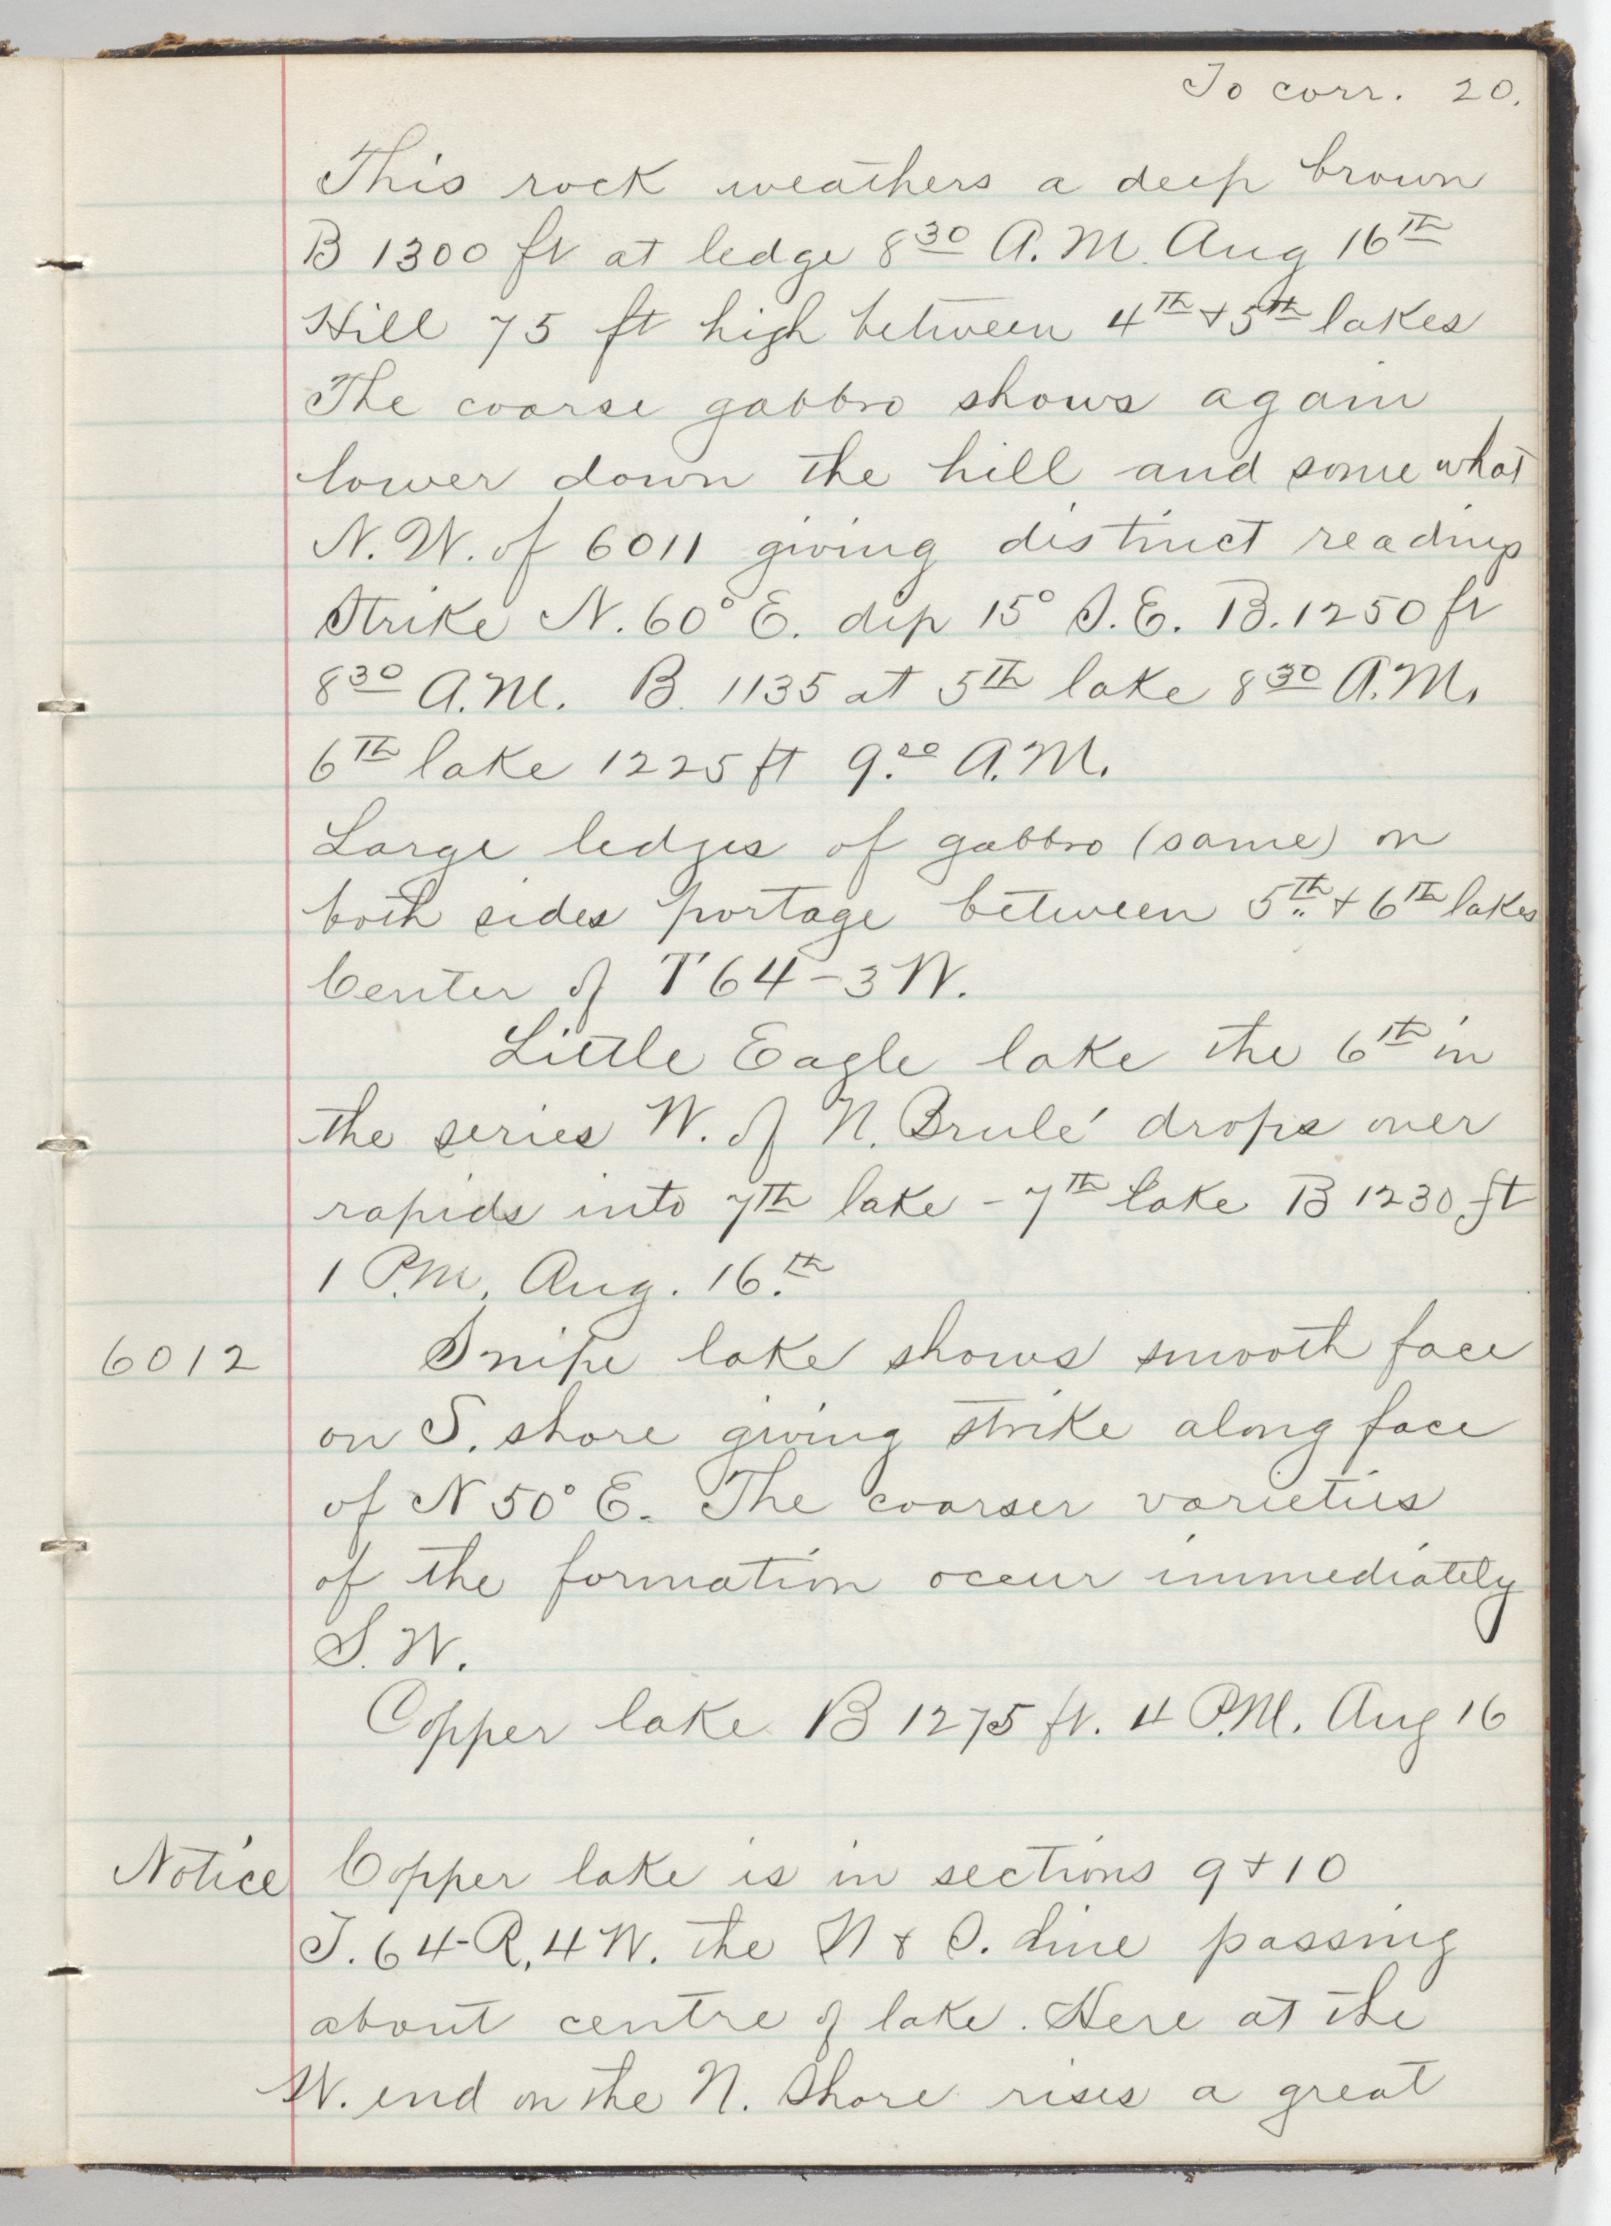 To corr. 20.
This rock weathers a deep brown
B 1300 ft at ledge 8 30 A.M. Aug 16th
Hill 75 ft high between 4th + 5th lakes
The coarse gabbro shows again
lower down the hill and some what
N.W. of 6011 giving distinct readings
Strike N. 60° E. dip 15° S.E. B. 1250 ft
8 30 A.M. B. 1135 at 5th lake 8 30 A.M.
6th lake 1225 ft 9.00 A.M.
Large ledges of gabbro (same) on
both sides portage between 5th + 6th lakes
Center of T 64-3 W.
Little Eagle lake the 6th in
the series W. of N. Brulé drops over
rapids into 7th lake - 7th lake B 1230 ft
1 P.M. Aug. 16.th
6012 Snipe lake shows smooth face
on S. shore giving strike along face
of N 50° E. The coarser varieties
of the formation occur immediately
S.W.
Copper lake B 1275 ft. 4 P.M. Aug 16
Notice Copper lake is in sections 9 + 10
T. 64-R. 4 W. the N & S. line passing
about centre of lake. Here at the
W. end on the N. Shore rises a great